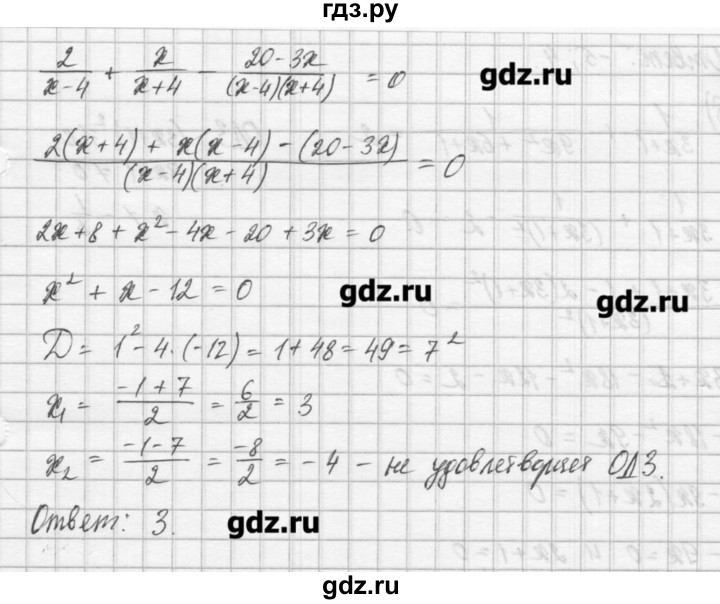 гдз.ру
2/(x-4) + x/(x+4) - (20-3x)/((x-4)(x+4)) = 0
gdz.ru
(2(x+4) + x(x-4) - (20-3x))/((x-4)(x+4)) = 0
2x+8+x²-4x-20+3x=0
x²+x-12=0
gdz.ru
gdz.ru
Д = 1²-4·(-12) = 1+48=49=7²
x₁ = (-1+7)/2 = 6/2 = 3
x₂ = (-1-7)/2 = -8/2 = -4 - не удовлетворяет ОДЗ.
Ответ: 3.
gdz.ru
gdz.ru